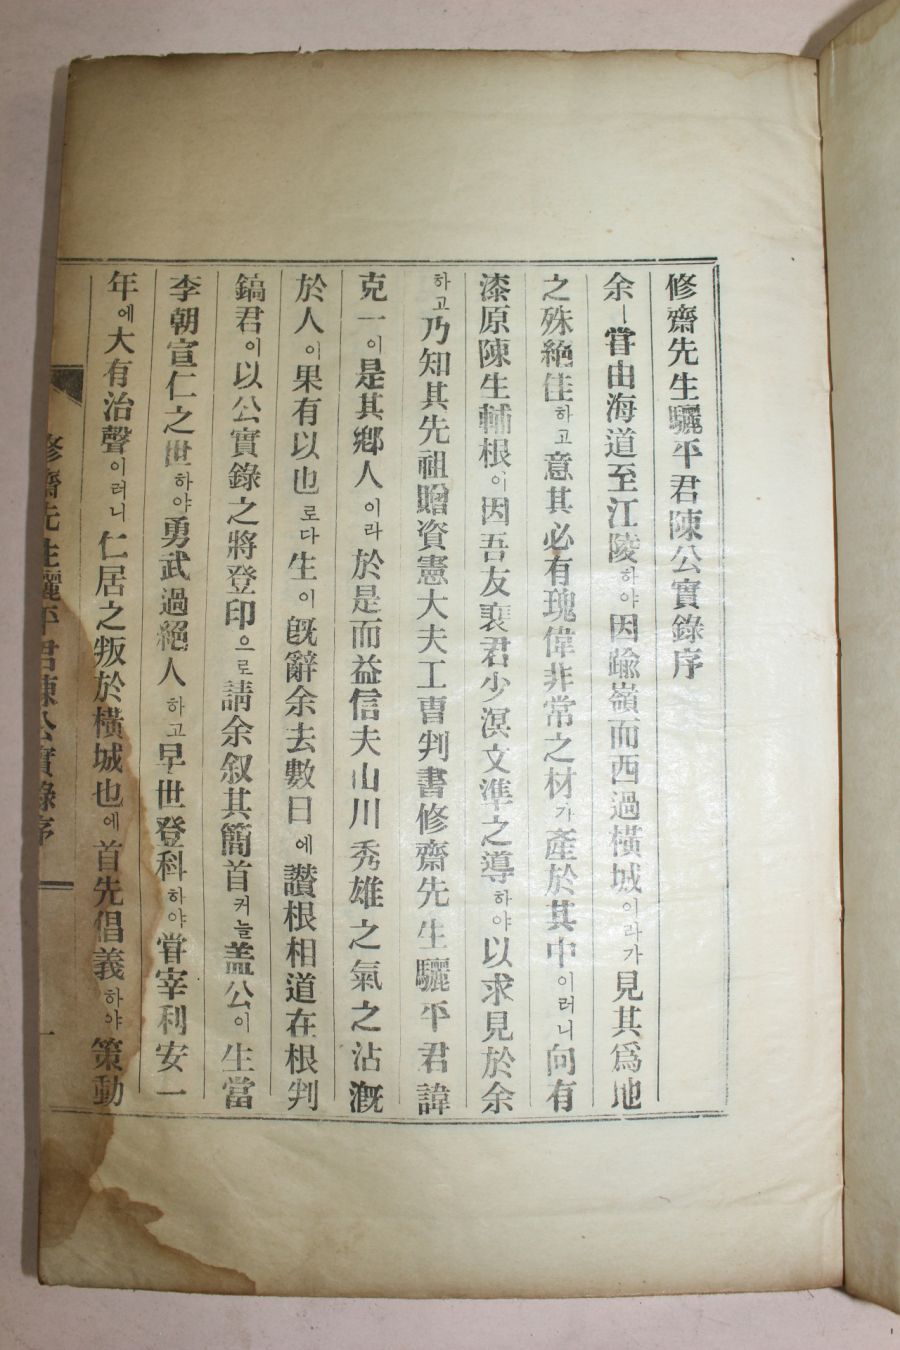 修齋先生驪平君陳公實錄序
余ㅣ嘗由海道至江陵하야因踰嶺而西過橫城이라가見其爲地
之殊絶佳하고意其必有瑰偉非常之材가產於其中이러니向有
漆原陳生輔根이因吾友裵君少溟文準之導하야以求見於余
하고乃知其先祖贈資憲大夫工曹判書修齋先生驪平君諱
克一이是其鄕人이라於是而益信夫山川秀雄之氣之沾漑
於人이果有以也로다生이旣辭余去數日에讃根相道在根判
鎬君이以公實錄之將登印으로請余叙其簡首커늘盖公이生當
李朝宣仁之世하야勇武過絶人하고早世登科하야嘗宰利安一
年에大有治聲이러니仁居之叛於橫城也에首先倡義하야策動
修齋先生驪平君陳公實錄序
一